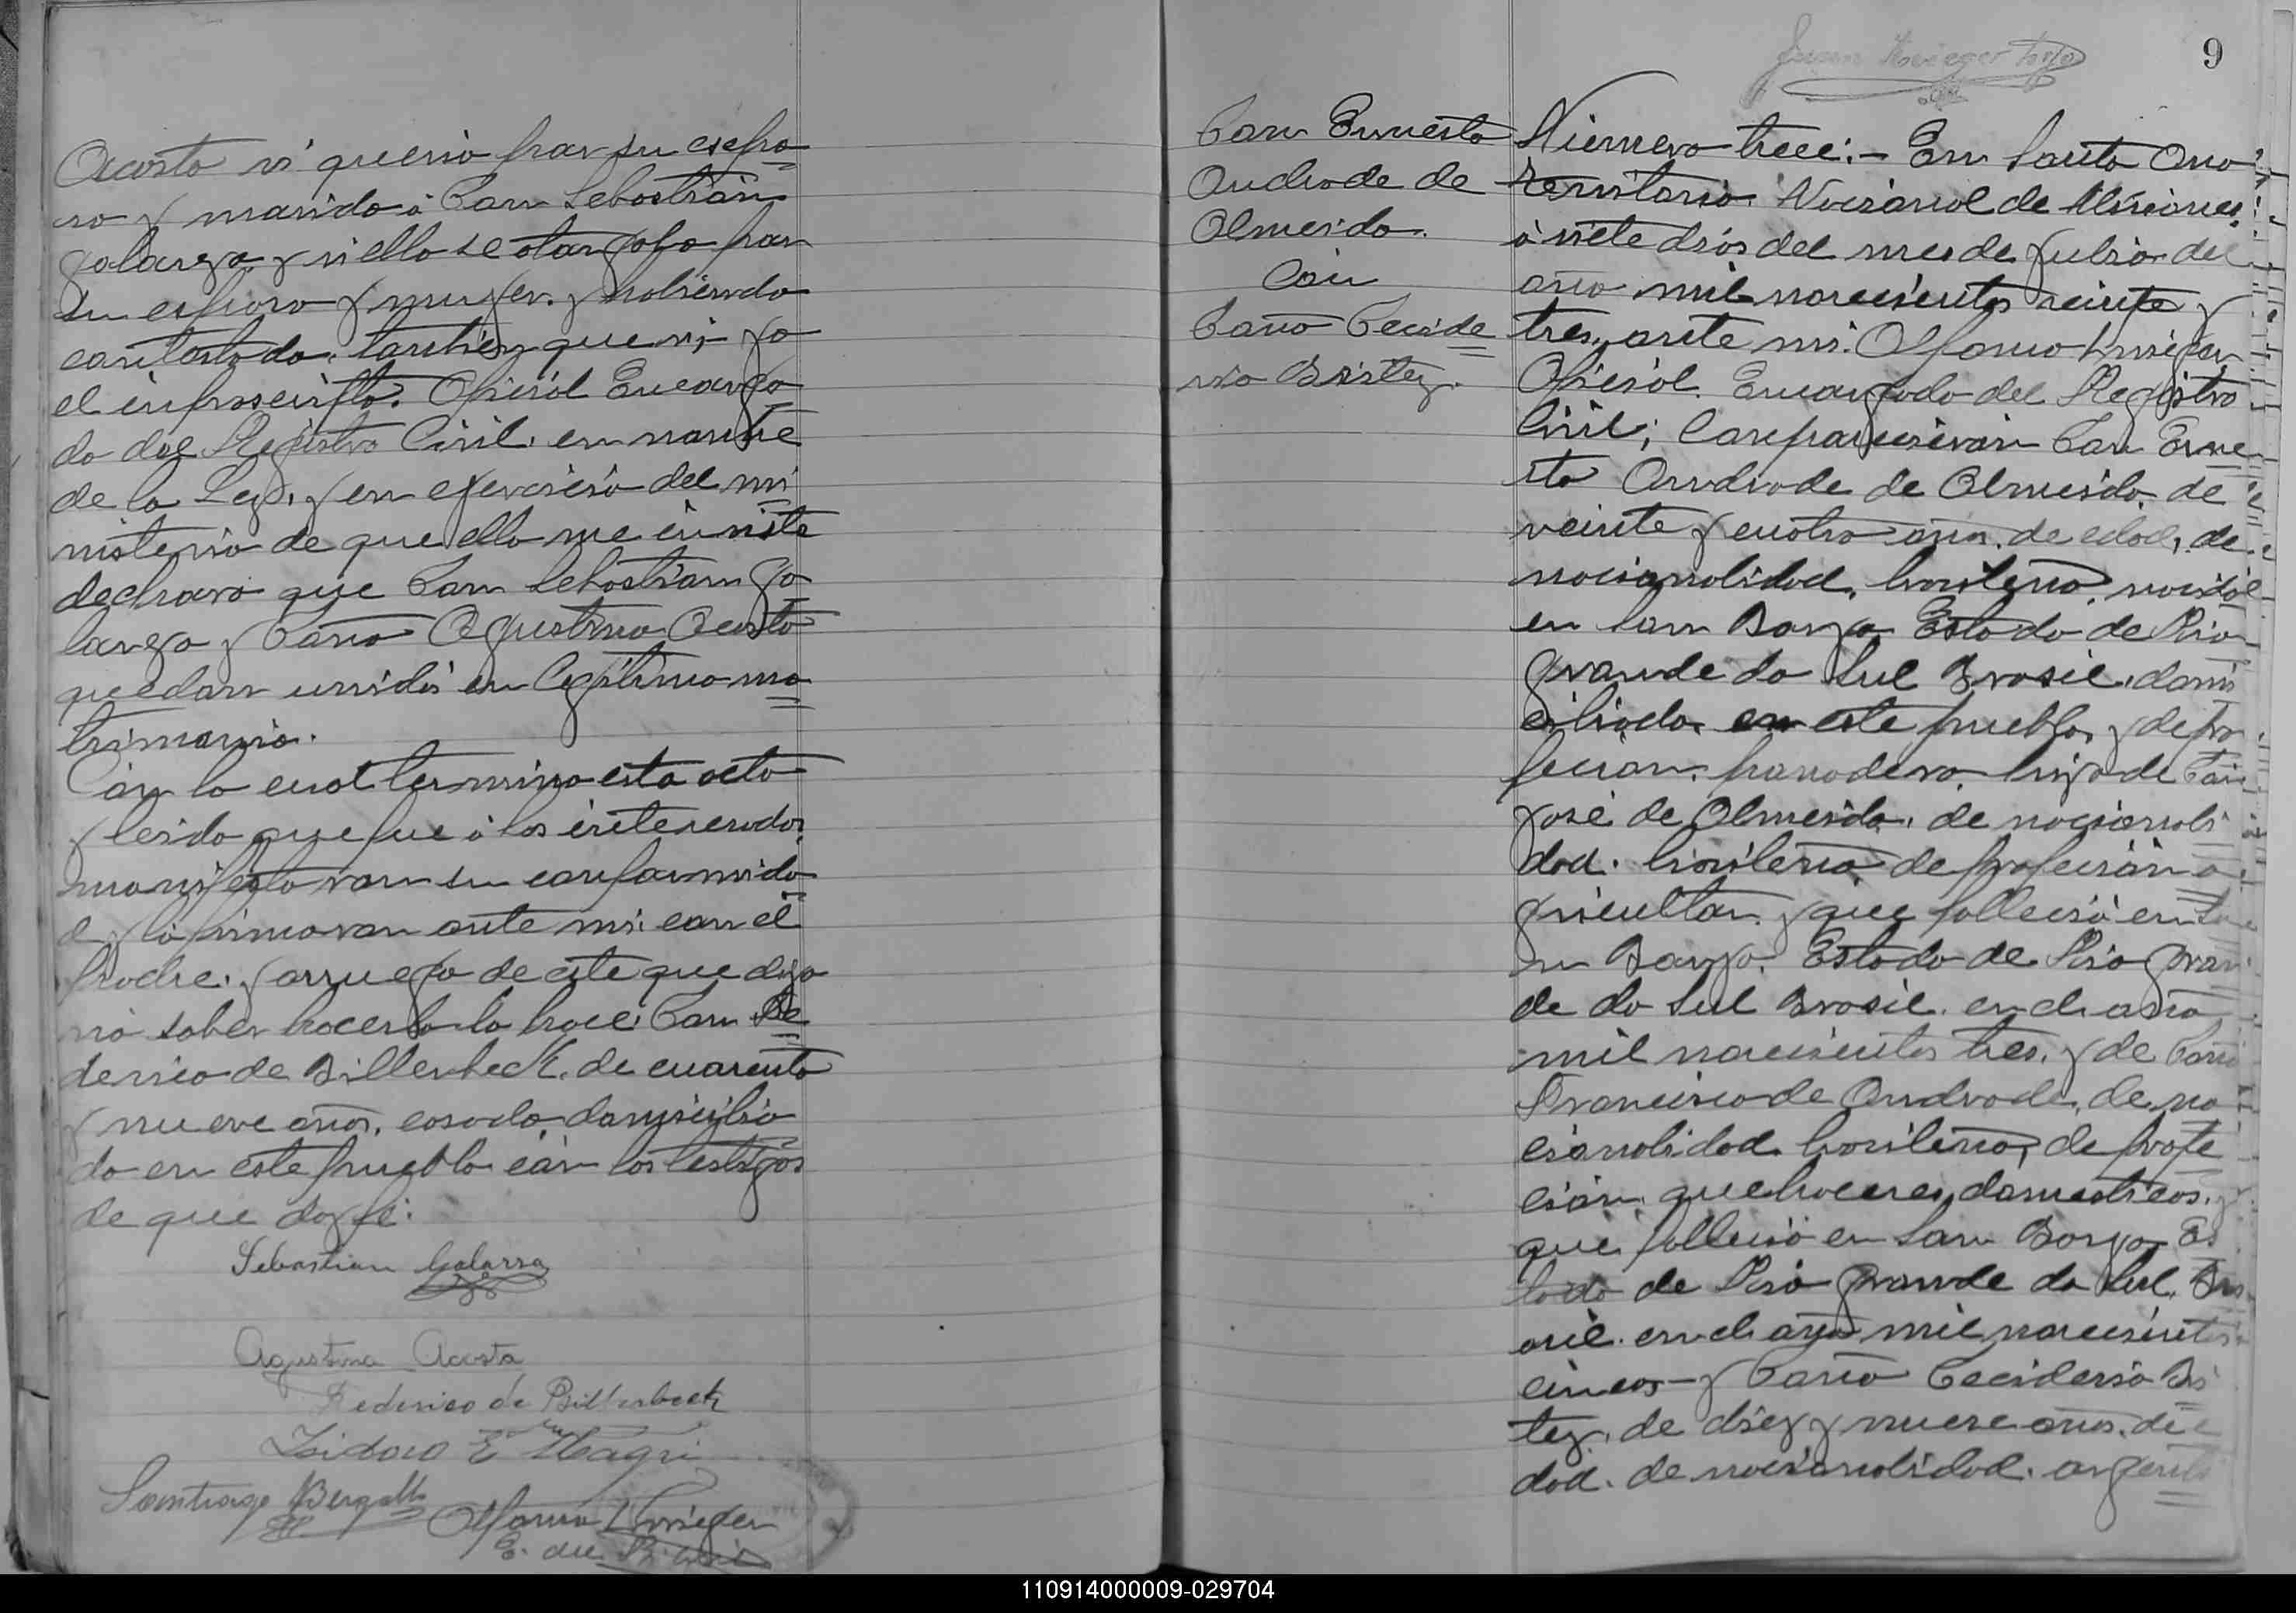 Acosta si queria por su espo
so y marido á Don Sebastian
Galarza y si ello se otorgaba por
su esposa y mujer. y habiendo
contestado. tambien que si; yo
el infrascripto. Oficial Encarga
do del Registro Civil. en nombre
de la Ley, y en ejercicio del mi
nisterio de que ella me inviste
declaro que Don Sebastian Ga
larza y Doña Agustina Acosta
quedan unidos en legitimo ma
trimonio.
Con lo cual termino esta acta
y leida que fue á los interesados,
manifestaron su conformida
d y la firmaron ante mi. con el
padre. y arruego de este que dijo
no saber hacerlo lo hace: Don Fe
derico de Billerbeck. de cuarenta
y nueve años, casado, domicilia
do en este pueblo con los testigos
de que doy fé.
Sebastian Galarza
Agustina Acosta
Federico de Billerbeck
Isidoro E Magri
Santiago
Alfonso Krieger
E. del R. Civil
9
Don Ernesto
Andrade de
Olmeida.
Con
Doña Decide
ria Bistez.
Número trece:- En Santa Ana
Territorio Nacional de Misiones,
á siete dias del mes de Julio del
año mil novecientos veinte y
tres, ante mi. Alfonso Krieger
Oficial. Encargado del Registro
Civil; Comparecieron Don Erne
sto Andrade de Olmeida de
veinte y cuatro años. de edad, de
nacionalidad. brasilera, nacido
en San Borja Estado de Rio
Grande do Sul Brasil, domi
ciliado. en este pueblo, y de pro
fecion. panadero. hijo de Don
José de Olmeida, de nacionali
dad. brasilera de profecion a
gricultor. y que fallecio en Sa
n Borja. Estado de Rio Gran
de do Sul Brasil. en el año
mil novecientos tres. y de Doña
Francisca de Andrade, de na
cionalidad brasilera, de profe
cion, quehaceres domesticos. y
que fallecio en San Borja, Es
tado de Rio Grande do Sul. Bra
sil. en el año mil novecientos
cinco- y Doña Decideria Bis
tez, de diez y nueve años. de e
dad. de nacionalidad. argenti
110914000009-029704